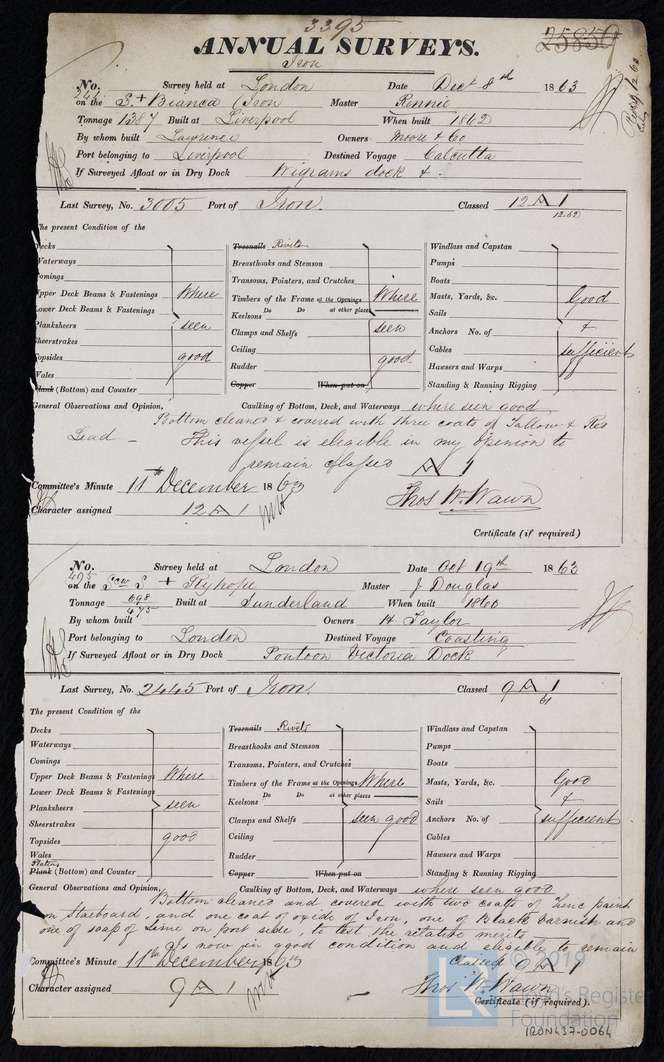 3395
ANNUAL SURVEYS. 25859
Iron
No. Survey held at London Date Decr 8th 1863
on the S. + Bianca (Iron Master Rennie
Tonnage 1387 Built at Liverpool When built 1862
By whom built Lawrence Owners Moore & Co
Port belonging to Liverpool Destined Voyage Calcutta
If Surveyed Afloat or in Dry Dock Wigrams dock &
Last Survey, No. 3005 Port of Iron. Classed 12 A 1
12.62
The present Condition of the
Decks Treenails Rivets Windlass and Capstan
Waterways Breasthooks and Stemson Pumps
Comings Transoms, Pointers, and Crutches Boats
Upper Deck Beams & Fastenings Where Timbers of the Frame at the Openings Where Masts, Yards, &c. Good
Lower Deck Beams & Fastenings Keelsons Do Do at other places Sails
Planksheers seen Clamps and Shelfs seen Anchors No. of &
Sheerstrakes Ceiling Cables sufficient
Topsides good Rudder good Hawsers and Warps
Wales
Plank (Bottom) and Counter Copper When put on Standing & Running Rigging
General Observations and Opinion, Caulking of Bottom, Deck, and Waterways where seen good
Bottom cleaned & covered with three coats of Tallow & Red
Lead – This vessel is eligible in my opinion to
remain classed A 1
Committee's Minute 11th December 1863 Thos W. Wawn
Character assigned 12 A 1
Certificate (if required)
No. Survey held at London Date Oct 19th 1863
495
on the Scw S + Ryhope Master J Douglas
Tonnage 698 Built at Sunderland When built 1860
475
By whom built Owners H Taylor
Port belonging to London Destined Voyage Coasting
If Surveyed Afloat or in Dry Dock Pontoon Victoria Dock
Last Survey, No. 2445 Port of Iron. Classed 9 A 1
61
The present Condition of the
Decks Treenails Rivets Windlass and Capstan
Waterways Breasthooks and Stemson Pumps
Comings Transoms, Pointers, and Crutches Boats
Upper Deck Beams & Fastenings Where Timbers of the Frame at the Openings Where Masts, Yards, &c. Good
Lower Deck Beams & Fastenings Keelsons Do Do at other places Sails &
Planksheers seen Clamps and Shelfs seen good Anchors No. of sufficient
Sheerstrakes Ceiling Cables
Topsides good
Wales Rudder Hawsers and Warps
Plating
Plank (Bottom) and Counter Copper When put on Standing & Running Rigging
General Observations and Opinion, Caulking of Bottom, Deck, and Waterways where seen good
Bottom cleaned and covered with two coats of Zinc paint
on starboard, and one coat of oxide of Iron, one of Black varnish and
one of soap of lime on port side, to test the relative merits.
Is now in good condition and eligible to remain
Committee's Minute 11th December 1863 Classed 9 A 1
Character assigned 9 A 1 Thos W. Wawn
Certificate (if required).
LR © 2019
Lloyd's Register
Foundation
IRON437-0064